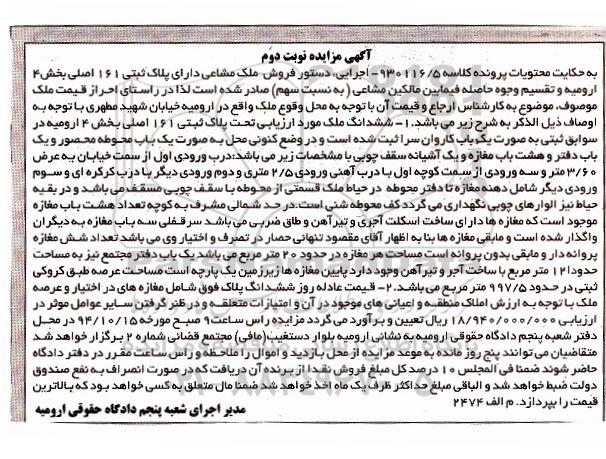 آگهی مزایده نوبت دوم
به حکایت محتویات پرونده کلاسه ۹۳۰۱۱۶/۵- اجرایی، دستور فروش ملک مشاعی دارای پلاک ثبتی ۱۶۱ اصلی بخش۴
ارومیه و تقسیم وجوه حاصله فیمابین مالکین مشاعی ( به نسبت سهم) صادر شده است لذا در راستای احراز قیمت ملک
موصوف، موضوع به کارشناس ارجاع و قیمت آن با توجه به محل وقوع ملک واقع در ارومیه خیابان شهید مطهری با توجه به
اوصاف ذیل الذکر به شرح زیر می باشد.۱- ششدانگ ملک مورد ارزیابی تحت پلاک ثبتی ۱۶۱ اصلی بخش ۴ ارومیه در
سوابق ثبتی به صورت یک باب کاروان سرا ثبت شده است و در وضع کنونی محل به صورت یک باب محوطه محصور و یک
باب دفتر و هشت باب مغازه و یک آشیانه سقف چوبی با مشخصات زیر می باشد:درب ورودی اول از سمت خیابان به عرض
۳/۶۰ متر و سه ورودی از سمت کوچه اول با درب آهنی ورودی ۲/۵ متری و دوم ورودی دیگر با درب کرکره ای و سوم
ورودی دیگر شامل دهنه مغازه تا دفتر محوطه در حیاط ملک قسمتی از محوطه با سقف چوبی مسقف می باشد و در بقیه
حیاط نیز الوارهای چوبی نگهداری می گردد کف محوطه شنی است.در حد شمالی مشرف به کوچه تعداد هشت باب مغازه
موجود است که مغازه ها دارای ساخت اسکلت آجری و تیرآهن و طاق ضربی می باشد سرقفلی سه باب مغازه به دیگران
واگذار شده است و مابقی مغازه ها بنا به اظهار آقای مقصود تنهائی حصار در تصرف و اختیار وی می باشد تعداد شش مغازه
پروانه دار و مابقی بدون پروانه است مساحت هر مغازه در حدود ۲۰ متر مربع می باشد یک باب دفتر مجتمع نیز به مساحت
حدود۱۲ متر مربع با ساخت آجر و تیرآهن وجود دارد پایین مغازه ها زیرزمین یک پارچه است مساحت عرصه طبق کروکی
ثبتی در حدود ۹۹۷/۵ متر مربع می باشد.۲- قیمت عادله روز ششدانگ پلاک فوق شامل مغازه های در اختیار و عرصه
ملک با توجه به ارزش املاک منطقه و اعیانی های موجود در آن و امتیازات متعلقه و در نظر گرفتن سایر عوامل موثر در
ارزیابی ۱۸/۹۴۰/۰۰۰/۰۰۰ ریال تعیین و برآورد می گردد مزایده راس ساعت ۹ صبح مورخه ۹۴/۱۰/۱۵ در محل
دفتر شعبه پنجم دادگاه حقوقی ارومیه به نشانی ارومیه بلوار دستغیب(مافی) مجتمع قضائی شماره ۲ برگزار خواهد شد
متقاضیان می توانند پنج روز مانده به موعد مزایده از محل بازدید و اموال را ملاحظه و راس ساعت مقرر در دفتر دادگاه
حاضر شوند ضمنا فی المجلس ۱۰ درصد کل مبلغ فروش نقدا از برنده آن دریافت که در صورت انصراف به نفع صندوق
دولت ضبط خواهد شد و الباقی مبلغ حداکثر ظرف یک ماه اخذ خواهد شد ضمنا مال متعلق به کسی خواهد بود که بالاترین
قیمت را بپردازد. م الف ۲۴۷۴
مدیر اجرای شعبه پنجم دادگاه حقوقی ارومیه